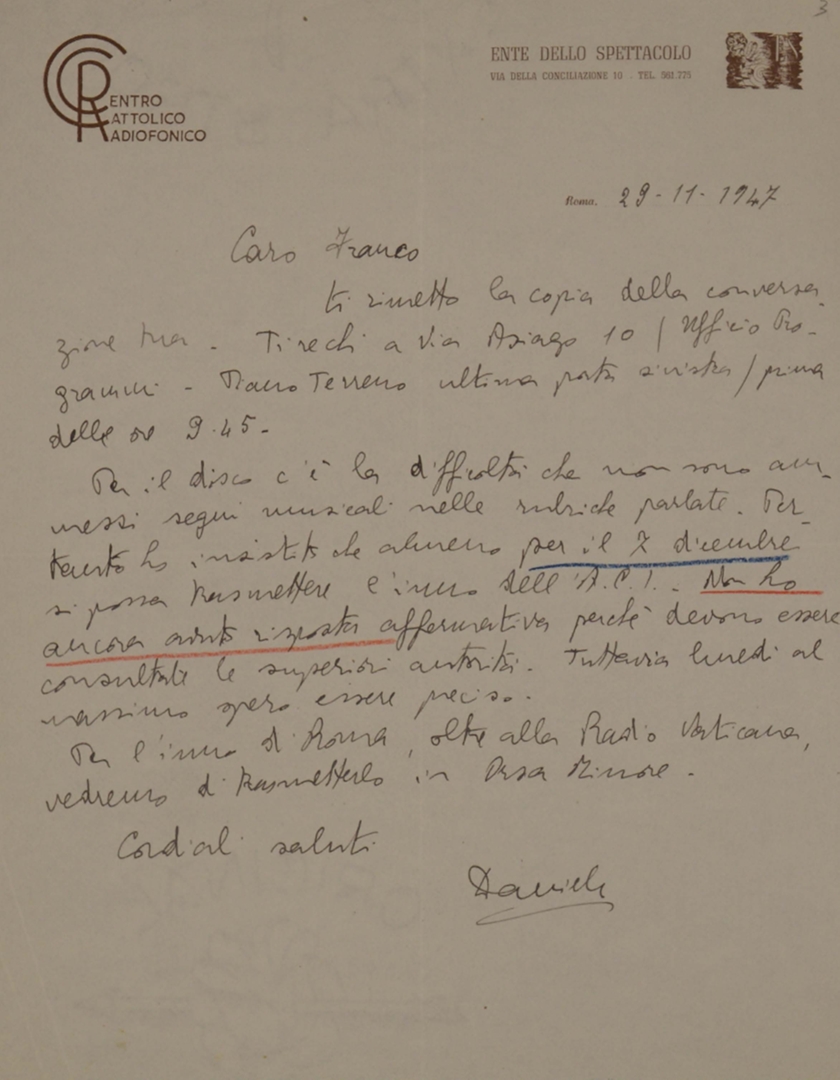 3
CENTRO
CATTOLICO
RADIOFONICO
ENTE DELLO SPETTACOLO
VIA DELLA CONCILIAZIONE 10 . TEL. 561.775
Roma, 29-11-1947
Caro Franco
ti rimetto la copia della conversa-
zione tua - Ti rechi a Via Asiago 10 / Ufficio Pro-
grammi - Piano Terreno ultima porta sinistra / prima
delle ore 9.45 -
Per il disco c'è la difficoltà che non sono am-
messi segni musicali nelle rubriche parlate. Per-
tanto ho insistito che almeno per il 7 dicembre
si possa trasmettere l'inno dell'A.C.I. - Non ho
ancora avuto risposta affermativa perchè devono essere
consultate le superiori autorità. Tuttavia lunedì al
massimo spero essere preciso.
Per l'inno di Roma, oltre alla Radio Vaticana,
vedremo di trasmetterlo in Orsa Minore -
Cordiali saluti
Daniele